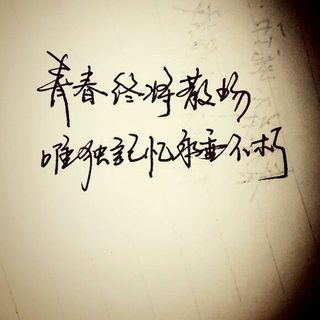 青春终将散场
唯独记忆永垂不朽